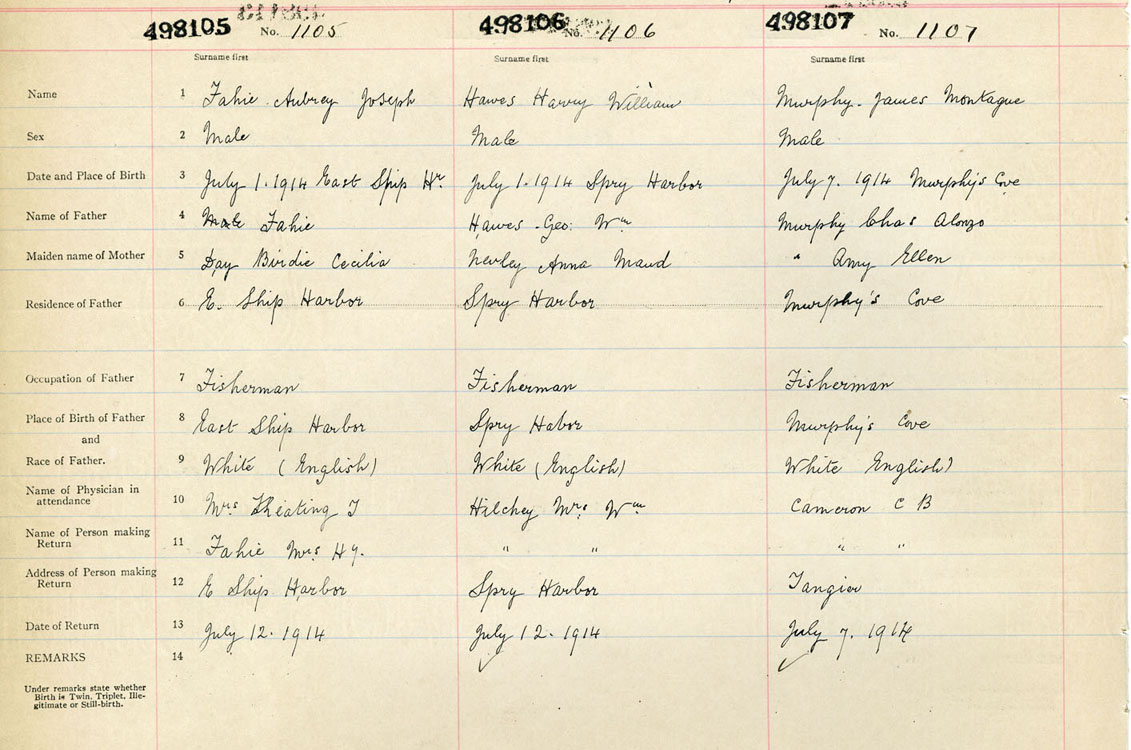 498105 No. 1105 498106 No. 1106 498107 No. 1107
Surname first Surname first Surname first
Name 1 Fahie Aubrey Joseph Hawes Harry William Murphy James Montague
Sex 2 Male Male Male
Date and Place of Birth 3 July 1. 1914 East Ship Hr. July 1. 1914 Spry Harbor July 7. 1914 Murphy's Cove
Name of Father 4 Fahie Hawes Geo: Wm Murphy Chas Alonzo
Maiden name of Mother 5 Day Birdie Cecilia Anna Maud " Amy Ellen
Residence of Father 6 E. Ship Harbor Spry Harbor Murphy's Cove
Occupation of Father 7 Fisherman Fisherman Fisherman
Place of Birth of Father 8 East Ship Harbor Spry Habor Murphy's Cove
and
Race of Father. 9 White (English) White (English) White English)
Name of Physician in
attendance 10 Mrs Hilchey Mrs Wm Cameron C B
Name of Person making
Return 11 Fahie Mrs Hy. " " " "
Address of Person making
Return 12 E Ship Harbor Spry Harbor Tangier
Date of Return 13 July 12. 1914 July 12. 1914 July 7. 1914
REMARKS 14
Under remarks state whether
Birth is Twin, Triplet, Ille-
gitimate or Still-birth.